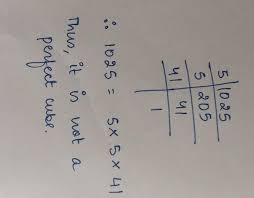 5 | 1025
5 | 205
41 | 41
| 1
∴ 1025 = 5 × 5 × 41
Thus, it is not a
perfect cube.